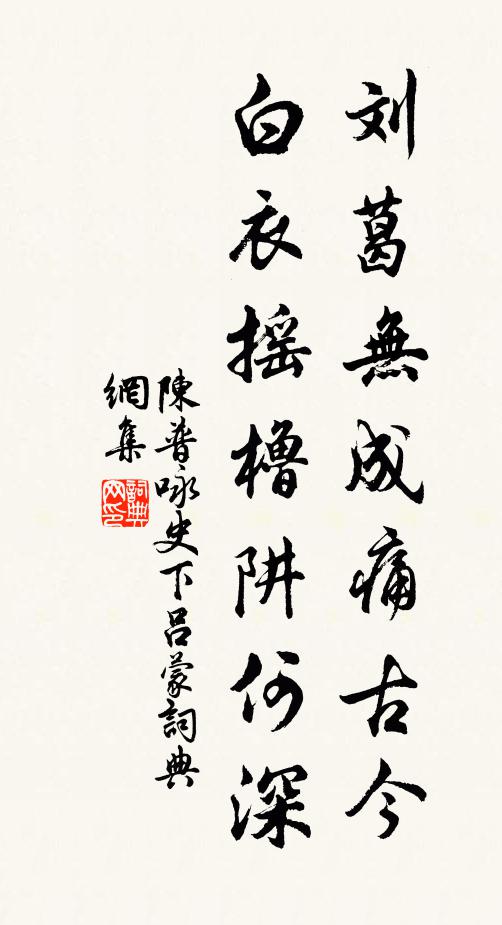 刘葛無成痛古今
白衣摇櫓阱何深
陳普咏史下吕蒙詞典
網集
詞典網印